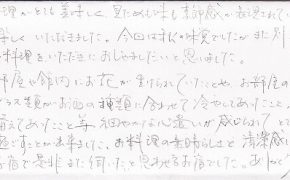 理がとても美味しく、見ためも味も季節感が表現されていて
楽しくいただきました。今回は秋の味覚でしたが、また別
の料理をいただきにおじゃましたいと思いました。
部屋や館内にお花が生けられていたことや、お部屋の
グラス類がお酒の種類に合わせて冷やしてあること、
備えてあること等、細やかな心遣いが感じられて、とても
過すことが出来ました。お料理の素晴らしさと清潔感
お宿で是非また伺いたと思わせるお宿でした。ありがとう